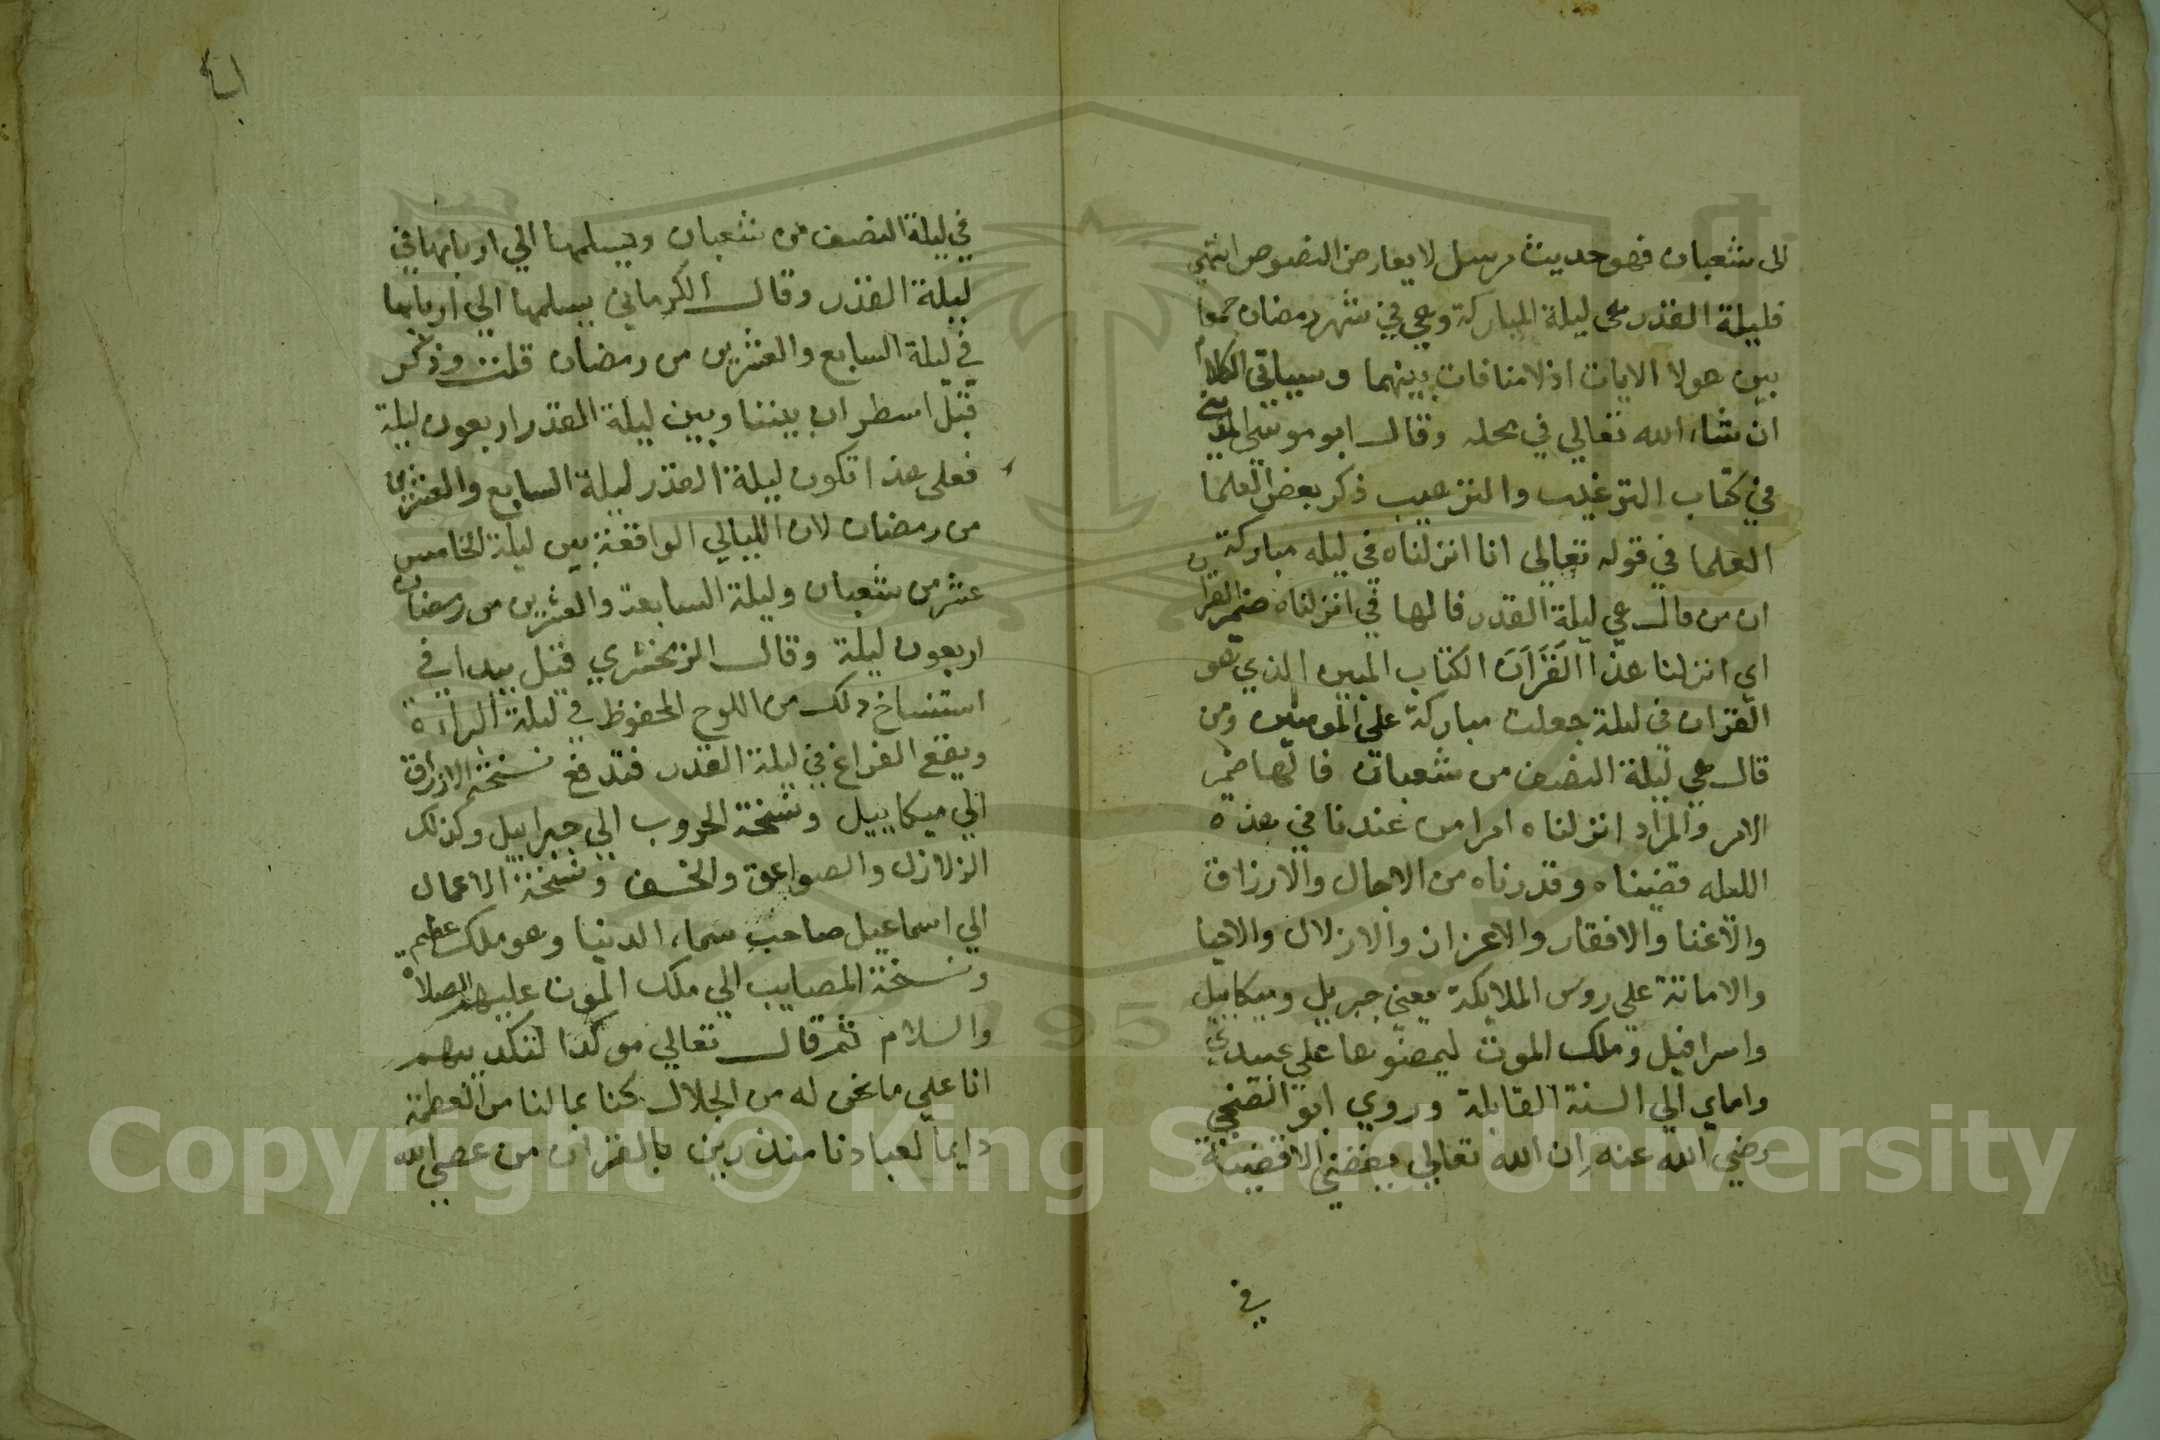 الى شعبان فهو حديث مرسل لا يعارض النصوص انتهى
فليلة القدر هى ليلة المباركة وهي في شهر رمضان جمعا
بين هولا الايات اذ لا منافات بينهما وسياتي الكلام
ان شاء الله تعالي في محله وقال ابو موسى المديني
في كتاب الترغيب والترهيب ذكر بعض العلما
العلما في قوله تعالى انا انزلناه في ليله مباركة
ان من قال هي ليلة القدر فالها في انزلناه ضمير القران
اي انزلنا هذا القران الكتاب المبين الذي هو
القران في ليلة جعلت مباركة على المومنين ومن
قال هي ليلة النصف من شعبان فالها ضمير
الامر والمراد انزلناه امرا من عندنا في هذه
الليله قضيناه وقدرناه من الاجال والارزاق
والاغنا والافقار والاعزاز والاذلال والاحيا
والاماتة علي روس الملايكة يعني جبريل وميكاييل
واسرافيل وملك الموت ليمضوها علي عبيدي
واماي الي السنة القابلة وروي ابو الضحي
رضي الله عنه ان الله تعالي يقضي الاقضية
في
٤١
في ليلة النصف من شعبان ويسلمها الي اربابها في
ليلة القدر وقال الكرماني يسلمها الي اربابها
في ليلة السابع والعشرين من رمضان قلت وذكر
قبل اسطر ان بيننا وبين ليلة القدر اربعون ليلة
فعلى هذا تكون ليلة القدر ليلة السابع والعشرين
من رمضان لان الليالي الواقعة بين ليلة الخامس
عشر من شعبان وليلة السابعة والعشرين من رمضان
اربعون ليلة وقال الزمخشري قيل يبدا في
استنساخ ذلك من اللوح المحفوظ في ليلة البراءة
ويقع الفراغ في ليلة القدر فتدفع نسخة الارزاق
الي ميكاييل ونسخة الحروب الي جبراييل وكذلك
الزلازل والصواعق والخسف ونسخة الاعمال
الي اسماعيل صاحب سماء الدنيا وهو ملك عظيم
ونسخة المصايب الي ملك الموت عليهم الصلاة
والسلام ثم قال تعالي موكدا لتكذيبهم
انا علي ما نحن له من الجلال كنا بما لنا من العظمة
دايما لعبادنا منذرين بالقران من عصي الله
Copyright © King Saud University